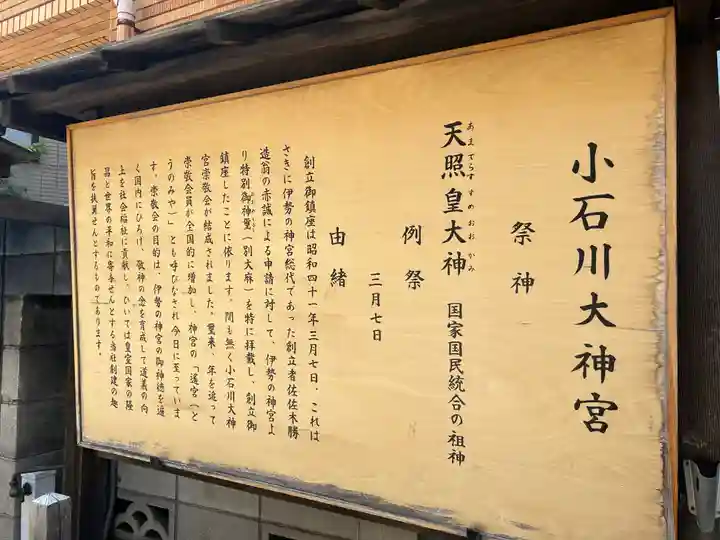 小石川大神宮
祭神
あまてらすすめおおかみ
天照皇大神 国家国民統合の祖神
例祭
三月七日
由緒
創立御鎮座は昭和四十一年三月七日、これは
さきに伊勢の神宮総代であった創立者佐佐木勝
造翁の赤誠による申請に対して、伊勢の神宮よ
り特別御神璽(別大麻)を特に拝載し、創立御
鎮座したことに依ります。間も無く小石川大神
宮崇敬会が結成されました。爾来、年を追って
崇敬会員が全国的に増加し、神宮の「遙宮(と
うのみや)」とも呼びなされ今日に至っていま
す。崇敬会の目的は、伊勢の神宮の御神徳を遍
く国内にひろげ、敬神の念を育成して道義の向
上を社会福祉に貢献し、ひいては皇室国家の隆
昌と世界の平和に寄与せんとする当社創建の趣
旨を扶翼せんとするものであります。